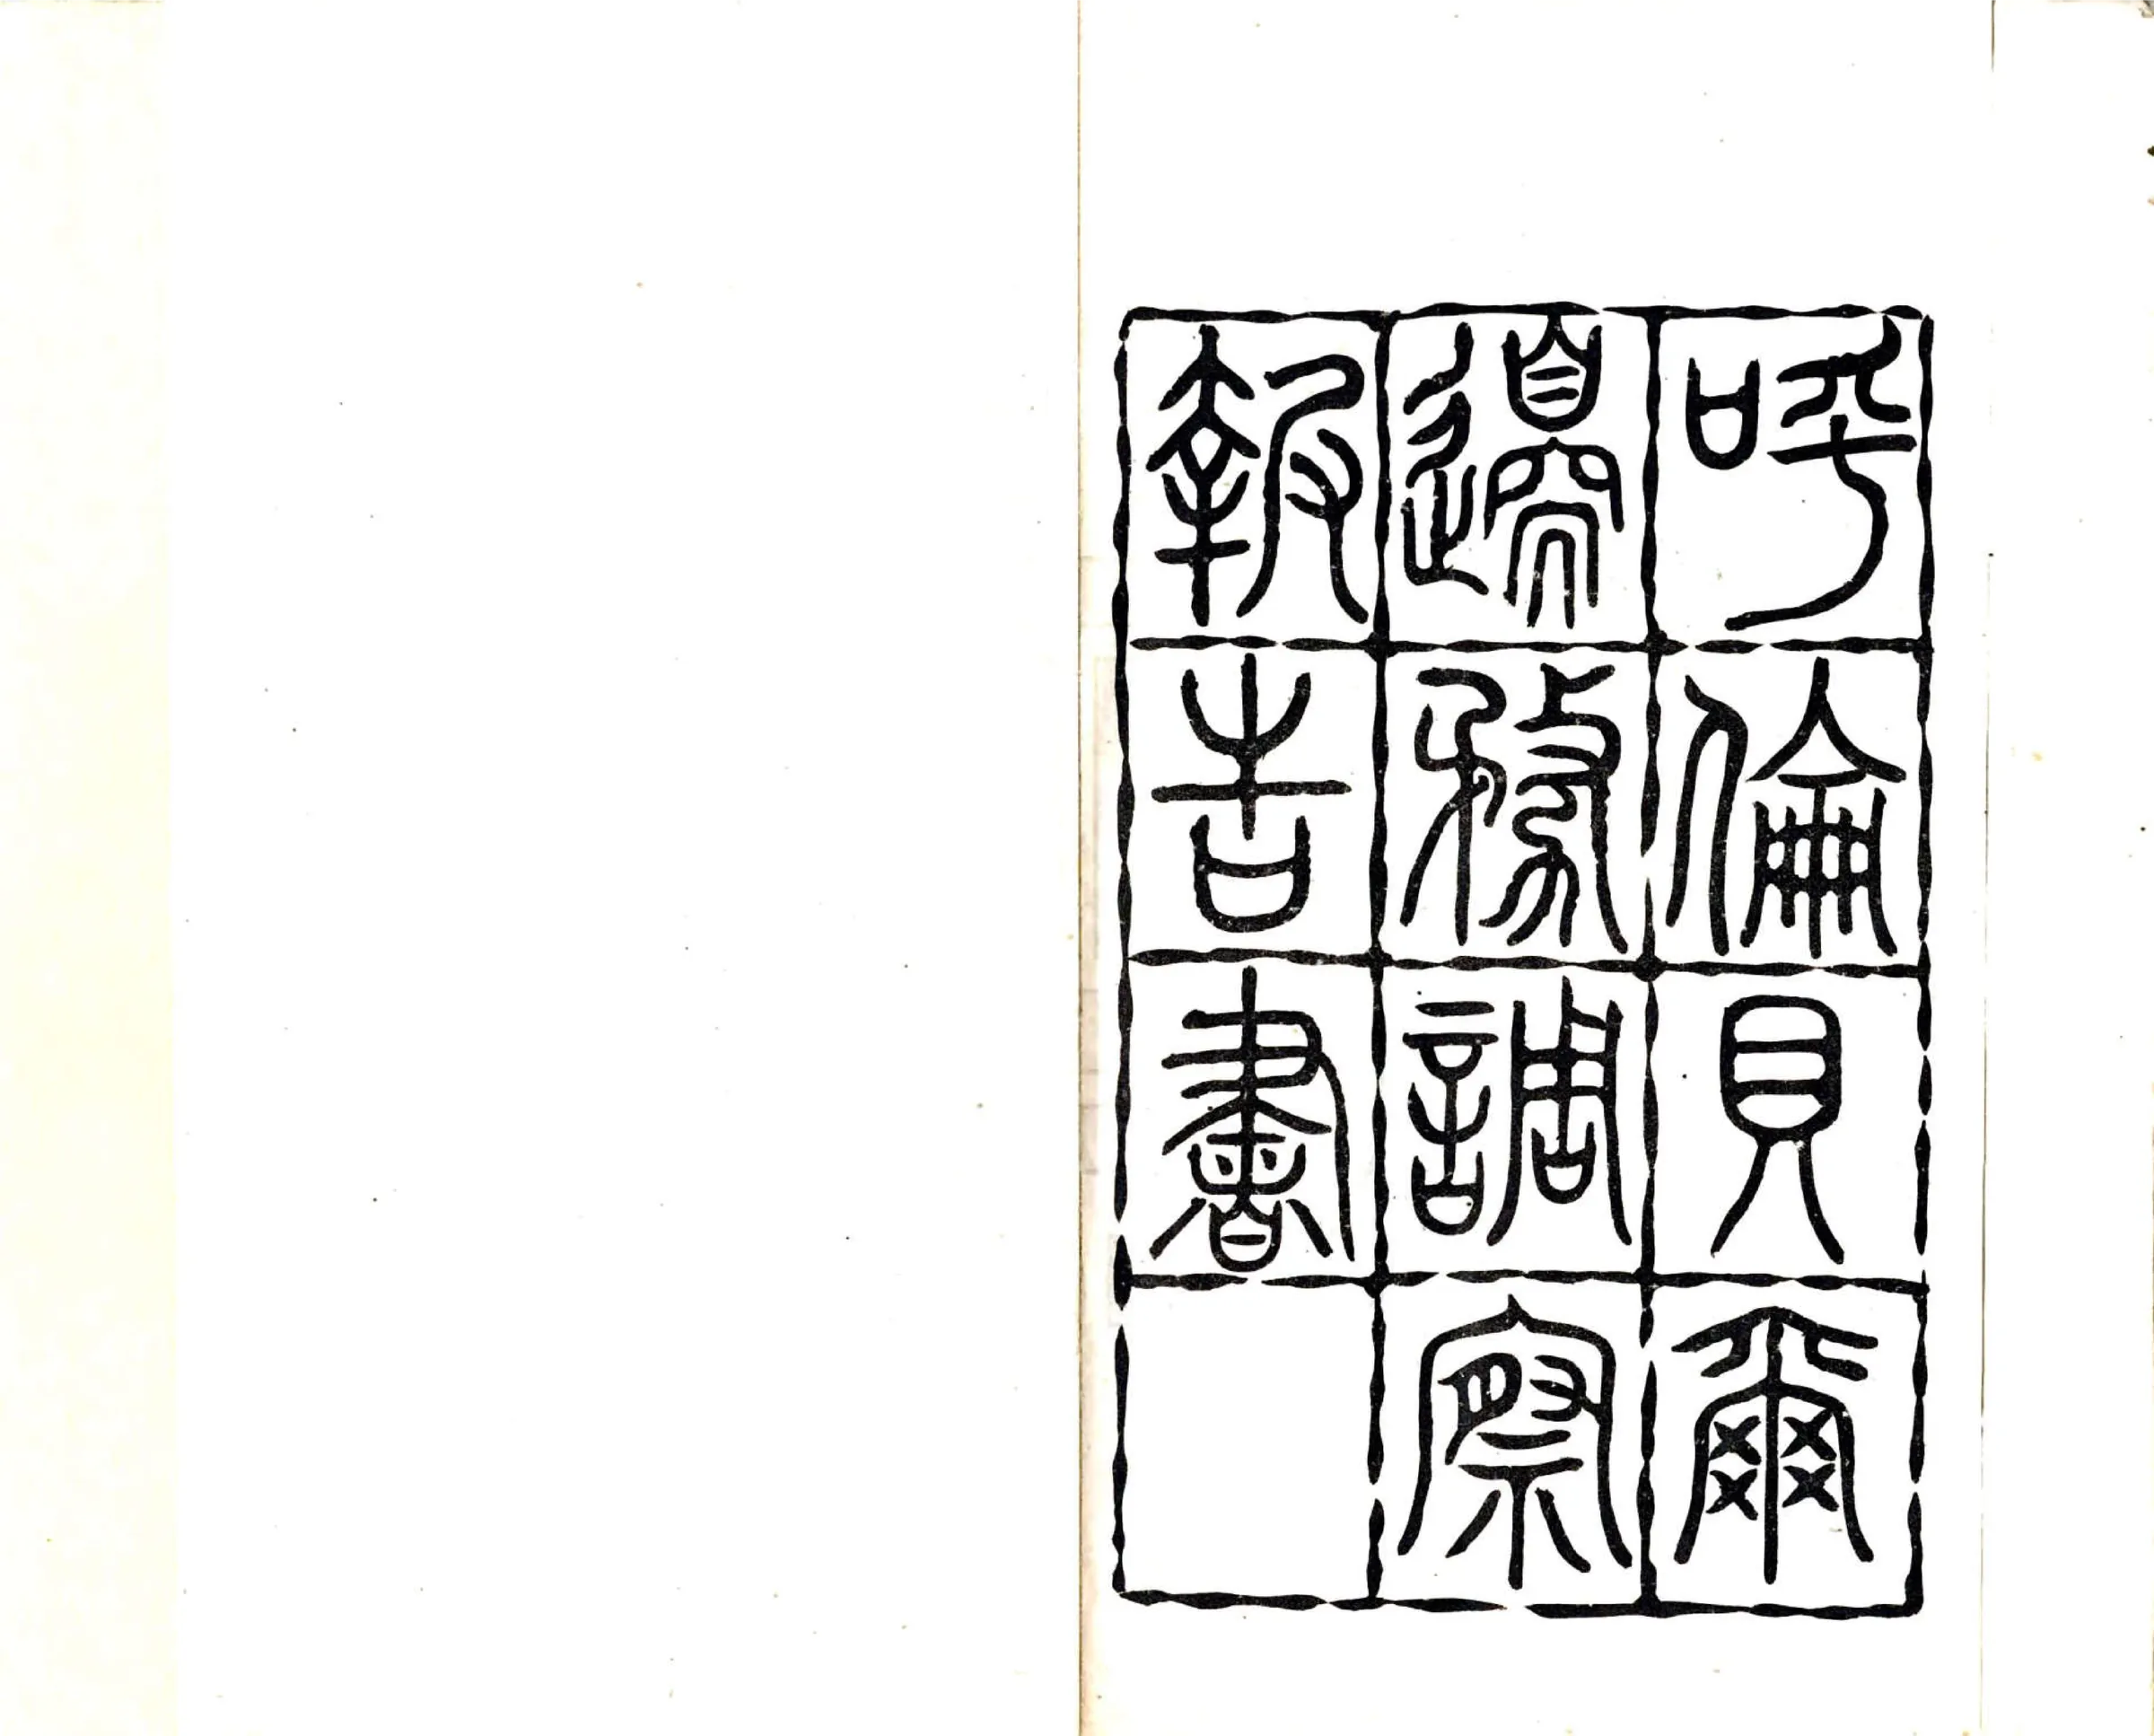 呼倫貝爾
邊務調察
報告書